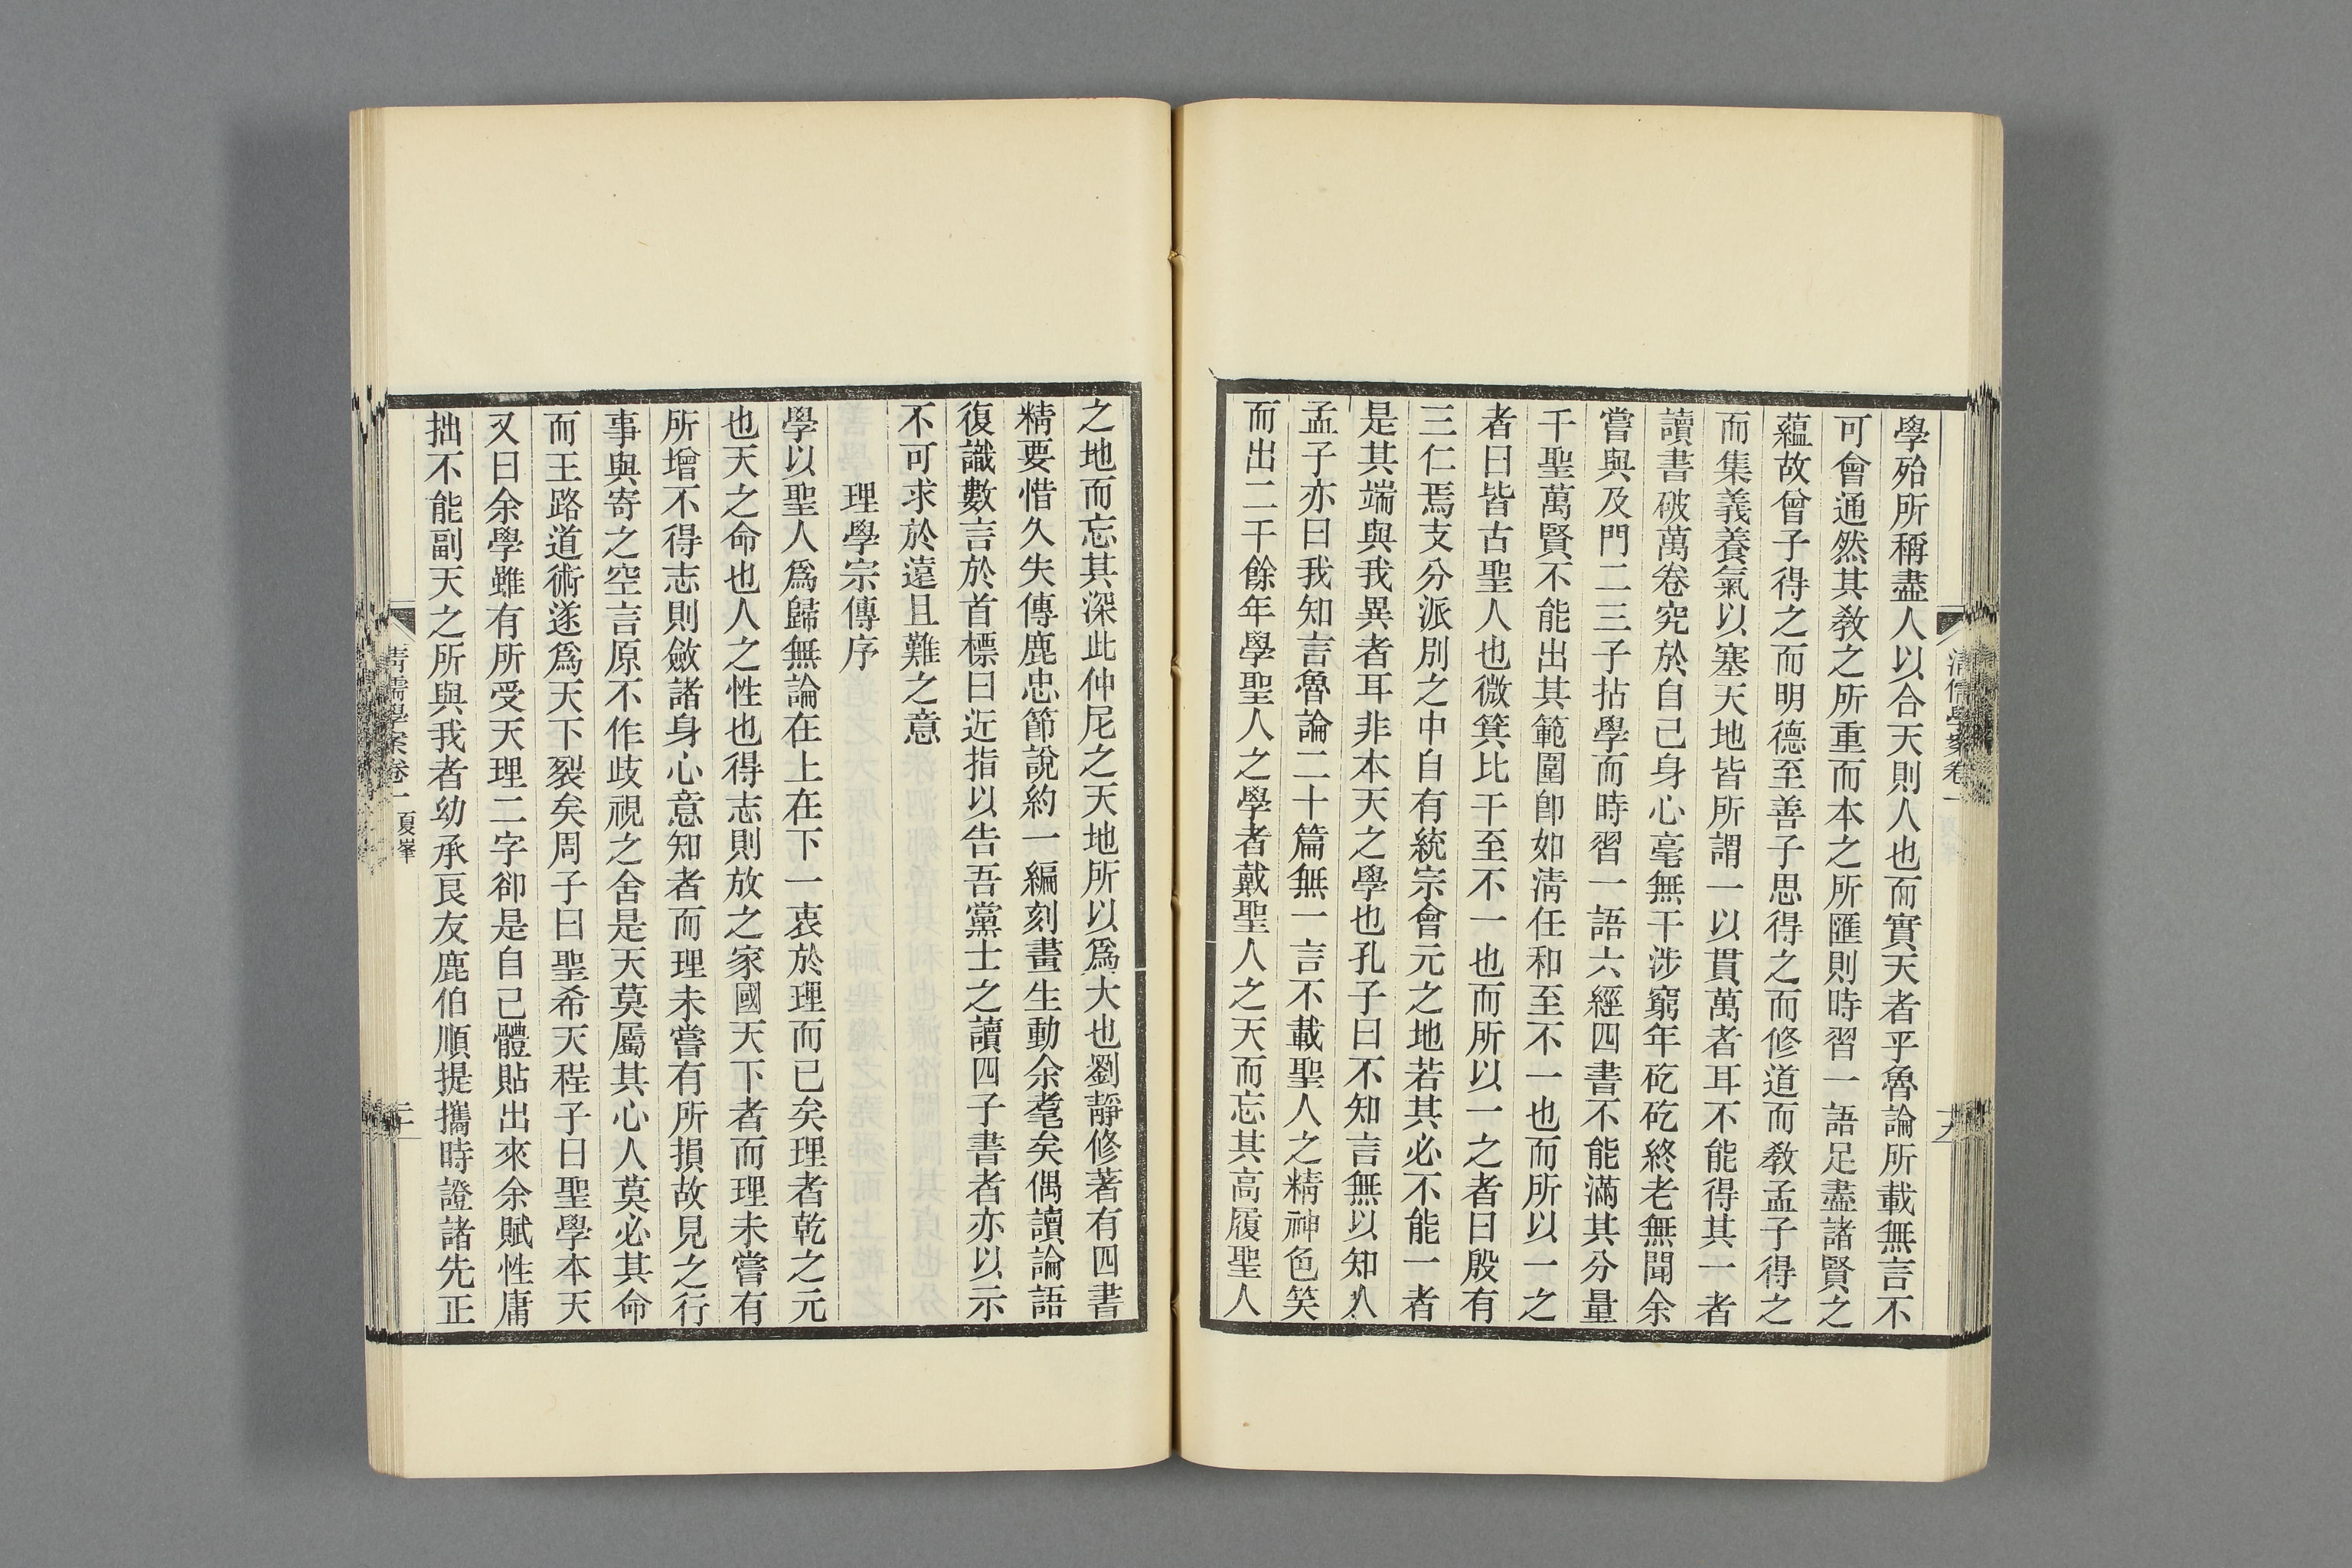 清儒學案卷一
十九
學殆所稱盡人以合天則人也而實天者乎魯論所載無言不
可會通然其敎之所重而本之所匯則時習一語足盡諸賢之
蘊故曾子得之而明德至善子思得之而修道而敎孟子得之
而集義養氣以塞天地皆所謂一以貫萬者耳不能得其一者
讀書破萬卷究於自己身心毫無干涉窮年矻矻終老無聞余
嘗與及門二三子拈學而時習一語六經四書不能滿其分量
千聖萬賢不能出其範圍卽如淸任和至不一也而所以一之
者曰皆古聖人也微箕比干至不一也而所以一之者曰殷有
三仁焉支分派別之中自有統宗會元之地若其必不能一者
是其端與我異者耳非本天之學也孔子曰不知言無以知人
孟子亦曰我知言魯論二十篇無一言不載聖人之精神色笑
而出二千餘年學聖人之學者戴聖人之天而忘其高履聖人
之地而忘其深此仲尼之天地所以爲大也劉靜修著有四書
精要惜久失傳鹿忠節說約一編刻畫生動余耄矣偶讀論語
復識數言於首標曰近指以告吾黨士之讀四子書者亦以示
不可求於遠且難之意
理學宗傳序
學以聖人爲歸無論在上在下一衷於理而已矣理者乾之元
也天之命也人之性也得志則放之家國天下者而理未嘗有
所增不得志則斂諸身心意知者而理未嘗有所損故見之行
事與寄之空言原不作歧視之舍是天莫屬其心人莫必其命
而王路道術遂爲天下裂矣周子曰聖希天程子曰聖學本天
又曰余學雖有所受天理二字卻是自己體貼出來余賦性庸
拙不能副天之所與我者幼承良友鹿伯順提攜時證諸先正
清儒學案卷一 夏峯